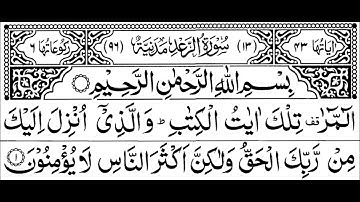 اٰیَاتُهَا ۴۳ (۱۳) سُوْرَةُ الرَّعْدِ مَدَنِیَّةٌ (۹۶) رُكُوْعَاتُهَا ۶
بِسْمِ اللّٰهِ الرَّحْمٰنِ الرَّحِیْمِ
الٓمّٓرٰ ۚ تِلْكَ اٰیٰتُ الْكِتٰبِ ؕ وَالَّذِیْۤ اُنْزِلَ اِلَیْكَ
مِنْ رَّبِّكَ الْحَقُّ وَلٰكِنَّ اَكْثَرَ النَّاسِ لَا یُؤْمِنُوْنَ ۱